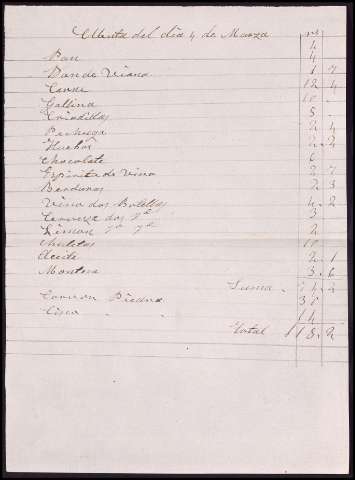 Cuenta del dia 4 de Marzo
Pan 4
Pan de Viena 1 7
Carne 12 4
Gallina 10
Criadillas 8
Pechuga 2 4
Huebos 2 2
Chocolate 6
Espiritu de vino 2 7
Berduras 2 3
Vino dos Botellas 4 2
Cerveza dos 3
Limon 2
Chuletas 10
Aceite 2 1
Manteca 3 6
Suma 74 2
Carvon Piedra 30
Cisco 14
Total 118 2